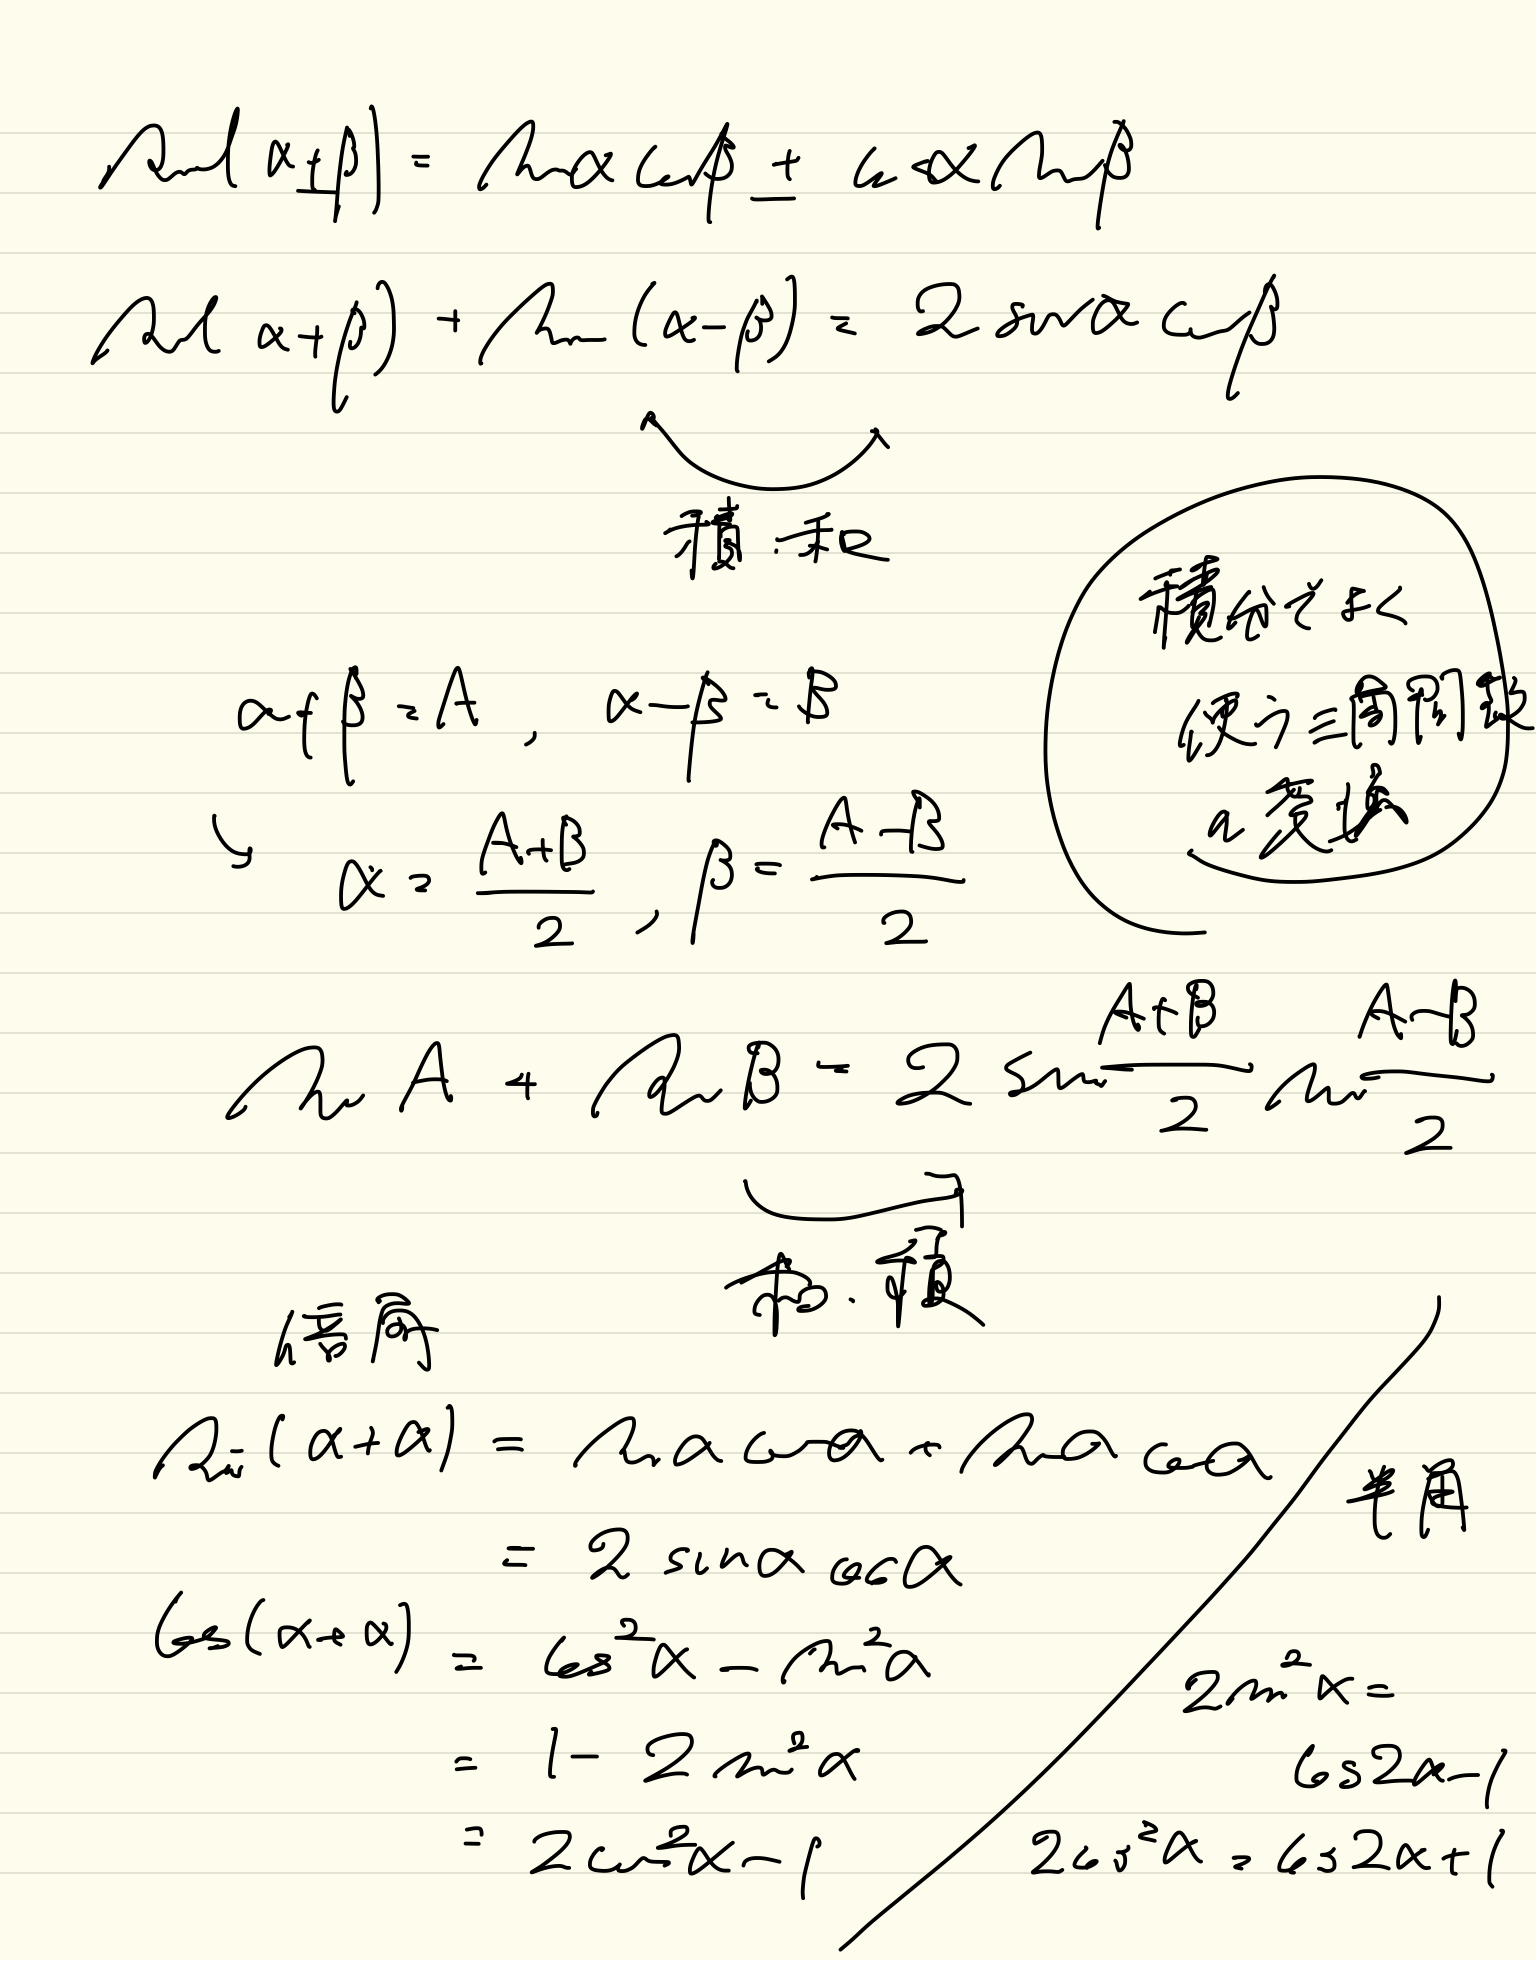 sin(α±β) = sinα cosβ ± cosα sinβ
sin(α+β) + sin(α-β) = 2 sinα cosβ
積・和
積分でよく
使う三角関数
の変換
α+β = A , α-β = B
α = (A+B)/2 , β = (A-B)/2
sin A + sin B = 2 sin (A+B)/2 sin (A-B)/2
和・積
倍角
sin(α+α) = sinα cosα + sinα cosα
半角
= 2 sinα cosα
cos(α+α) = cos²α - sin²α
2sin²α =
= 1 - 2 sin²α
cos2α-1
= 2cos²α-1
2cos²α = cos2α+1